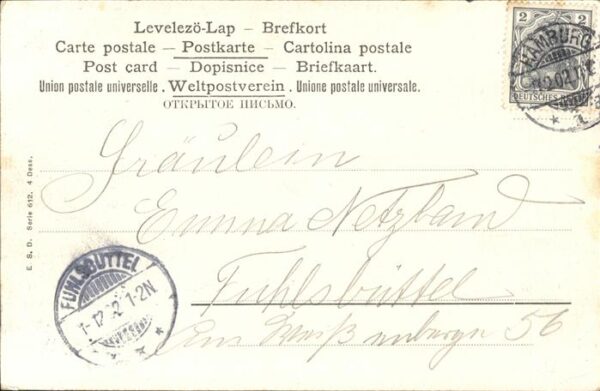 Levelezö-Lap – Brefkort
Carte postale – Postkarte – Cartolina postale
Post card – Dopisnice – Briefkaart.
Union postale universelle. Weltpostverein. Unione postale universale.
ОТКРЫТОЕ ПИСЬМО.
2 2
HAMBURG
DEUTSCHES
* 1
E. S. D. Serie 612. 4 Dess.
Fräulein
Emma Netzband
Fuhlsbüttel
56
FUHLSBÜTTEL
1-2N
* *